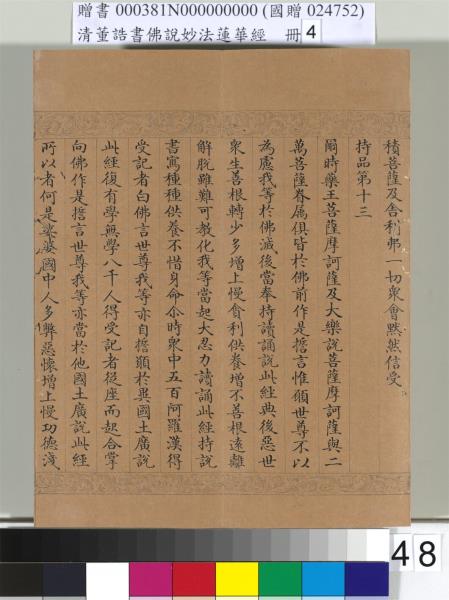 贈書 000381N000000000 (國贈 024752)
清董誥書佛說妙法蓮華經 冊4
積菩薩及舍利弗一切眾會黙然信受
持品第十三
爾時藥王菩薩摩訶薩及大樂說菩薩摩訶薩與二
萬菩薩眷屬俱皆於佛前作是誓言惟願世尊不以
為慮我等於佛滅後當奉持讀誦說此經典後惡世
眾生善根轉少多增上慢貪利供養增不善根遠離
解脫雖難可教化我等當起大忍力讀誦此經持說
書寫種種供養不惜身命尒時眾中五百阿羅漢得
受記者白佛言世尊我等亦自誓願於異國土廣說
此經復有學無學八千人得受記者從座而起合掌
向佛作是誓言世尊我等亦當於他國土廣說此經
所以者何是娑婆國中人多弊惡懷增上慢功德淺
48